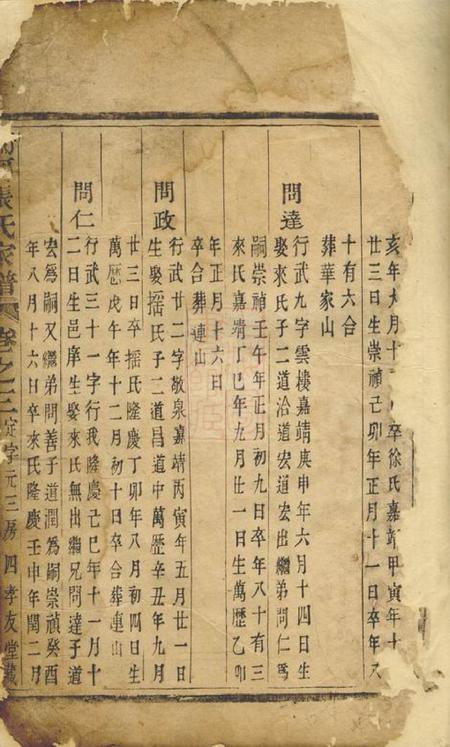 亥年九月十 卒徐氏嘉靖甲寅年十
廿三日生崇禎己卯年正月十一日卒年八
十有六合
葬華家山
問達
行武九字雲樓嘉靖庚申年六月十四日生
娶來氏子二道洽道宏道宏出繼弟問仁爲
嗣崇禎壬午年正月初九日卒年八十有三
來氏嘉靖丁巳年九月廿一日生萬歷乙卯
年正月十六日
卒合葬連山
問政
行武廿二字敬泉嘉靖丙寅年五月廿一日
生娶揺氏子二道昌道中萬歷辛丑年九月
廿三日卒揺氏隆慶丁卯年八月初四日生
萬歷戊午年十二月初十日卒合葬連山
問仁
行武三十一字行我隆慶己巳年十一月十
二日生邑庠生娶來氏無出繼兄問達子道
宏爲嗣又繼弟問善子道潤爲嗣崇禎癸酉
年八月十六日卒來氏隆慶壬申年閏二月
張氏家譜 卷之三 定字元三房 四 孝友堂藏